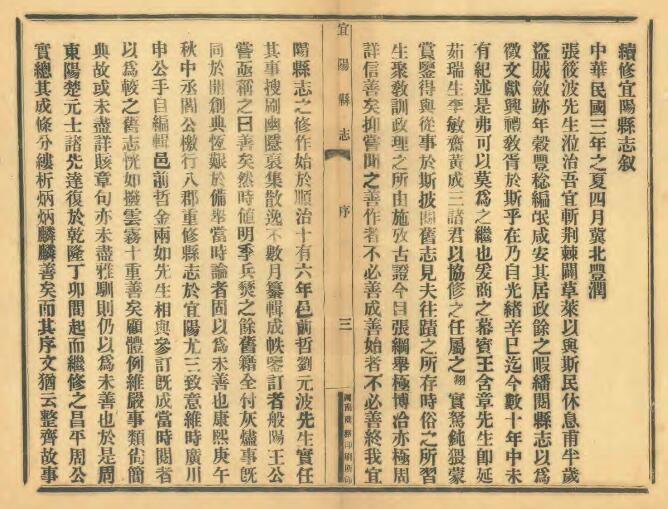 續修宜陽縣志敘
中華民國三年之夏四月冀北豐潤
張筱波先生涖治吾宜斬荊棘闢草萊以與斯民休息甫半歲
盜賊斂跡年穀豐稔編氓咸安其居政餘之暇繙閱縣志以為
徵文獻興禮教胥於斯乎在乃自光緒辛巳迄今數十年中未
有紀述是弗可以莫為之繼也爰商之幕賓王含章先生即延
茹瑞生李敏齋黃成三諸君以協修之任屬之翱實駑鈍猥蒙
賞鑒得與從事於斯披閱舊志見夫往蹟之所存時俗之所習
生聚教訓政理之所由施攷古證今目張綱舉極博洽亦極周
詳信善矣抑嘗聞之善作者不必善成善始者不必善終我宜
宜陽縣志
序
三
陽縣志之修作始於順治十有六年邑前哲劉元波先生實任
其事搜剔幽隱裒集散逸不數月纂輯成帙鑒訂者般陽王公
嘗亟稱之曰善矣然時值明季兵燹之餘舊籍全付灰燼事旣
同於剏創典恆艱於備舉當時論者固以為未善也康熙庚午
秋中丞閻公檄行八郡重修縣志於宜陽尤三致意維時廣川
申公手自編輯邑前哲金兩如先生相與參訂旣成當時閱者
以為較之舊志恍如撥雲霧十重善矣顧體例雖嚴事類尙簡
典故或未盡詳賅章句亦未盡雅馴則仍以為未善也於是周
東陽楚元士諸先達復於乾隆丁卯間起而繼修之昌平周公
實總其成條分縷析炳炳麟麟善矣而其序文猶云整齊故事